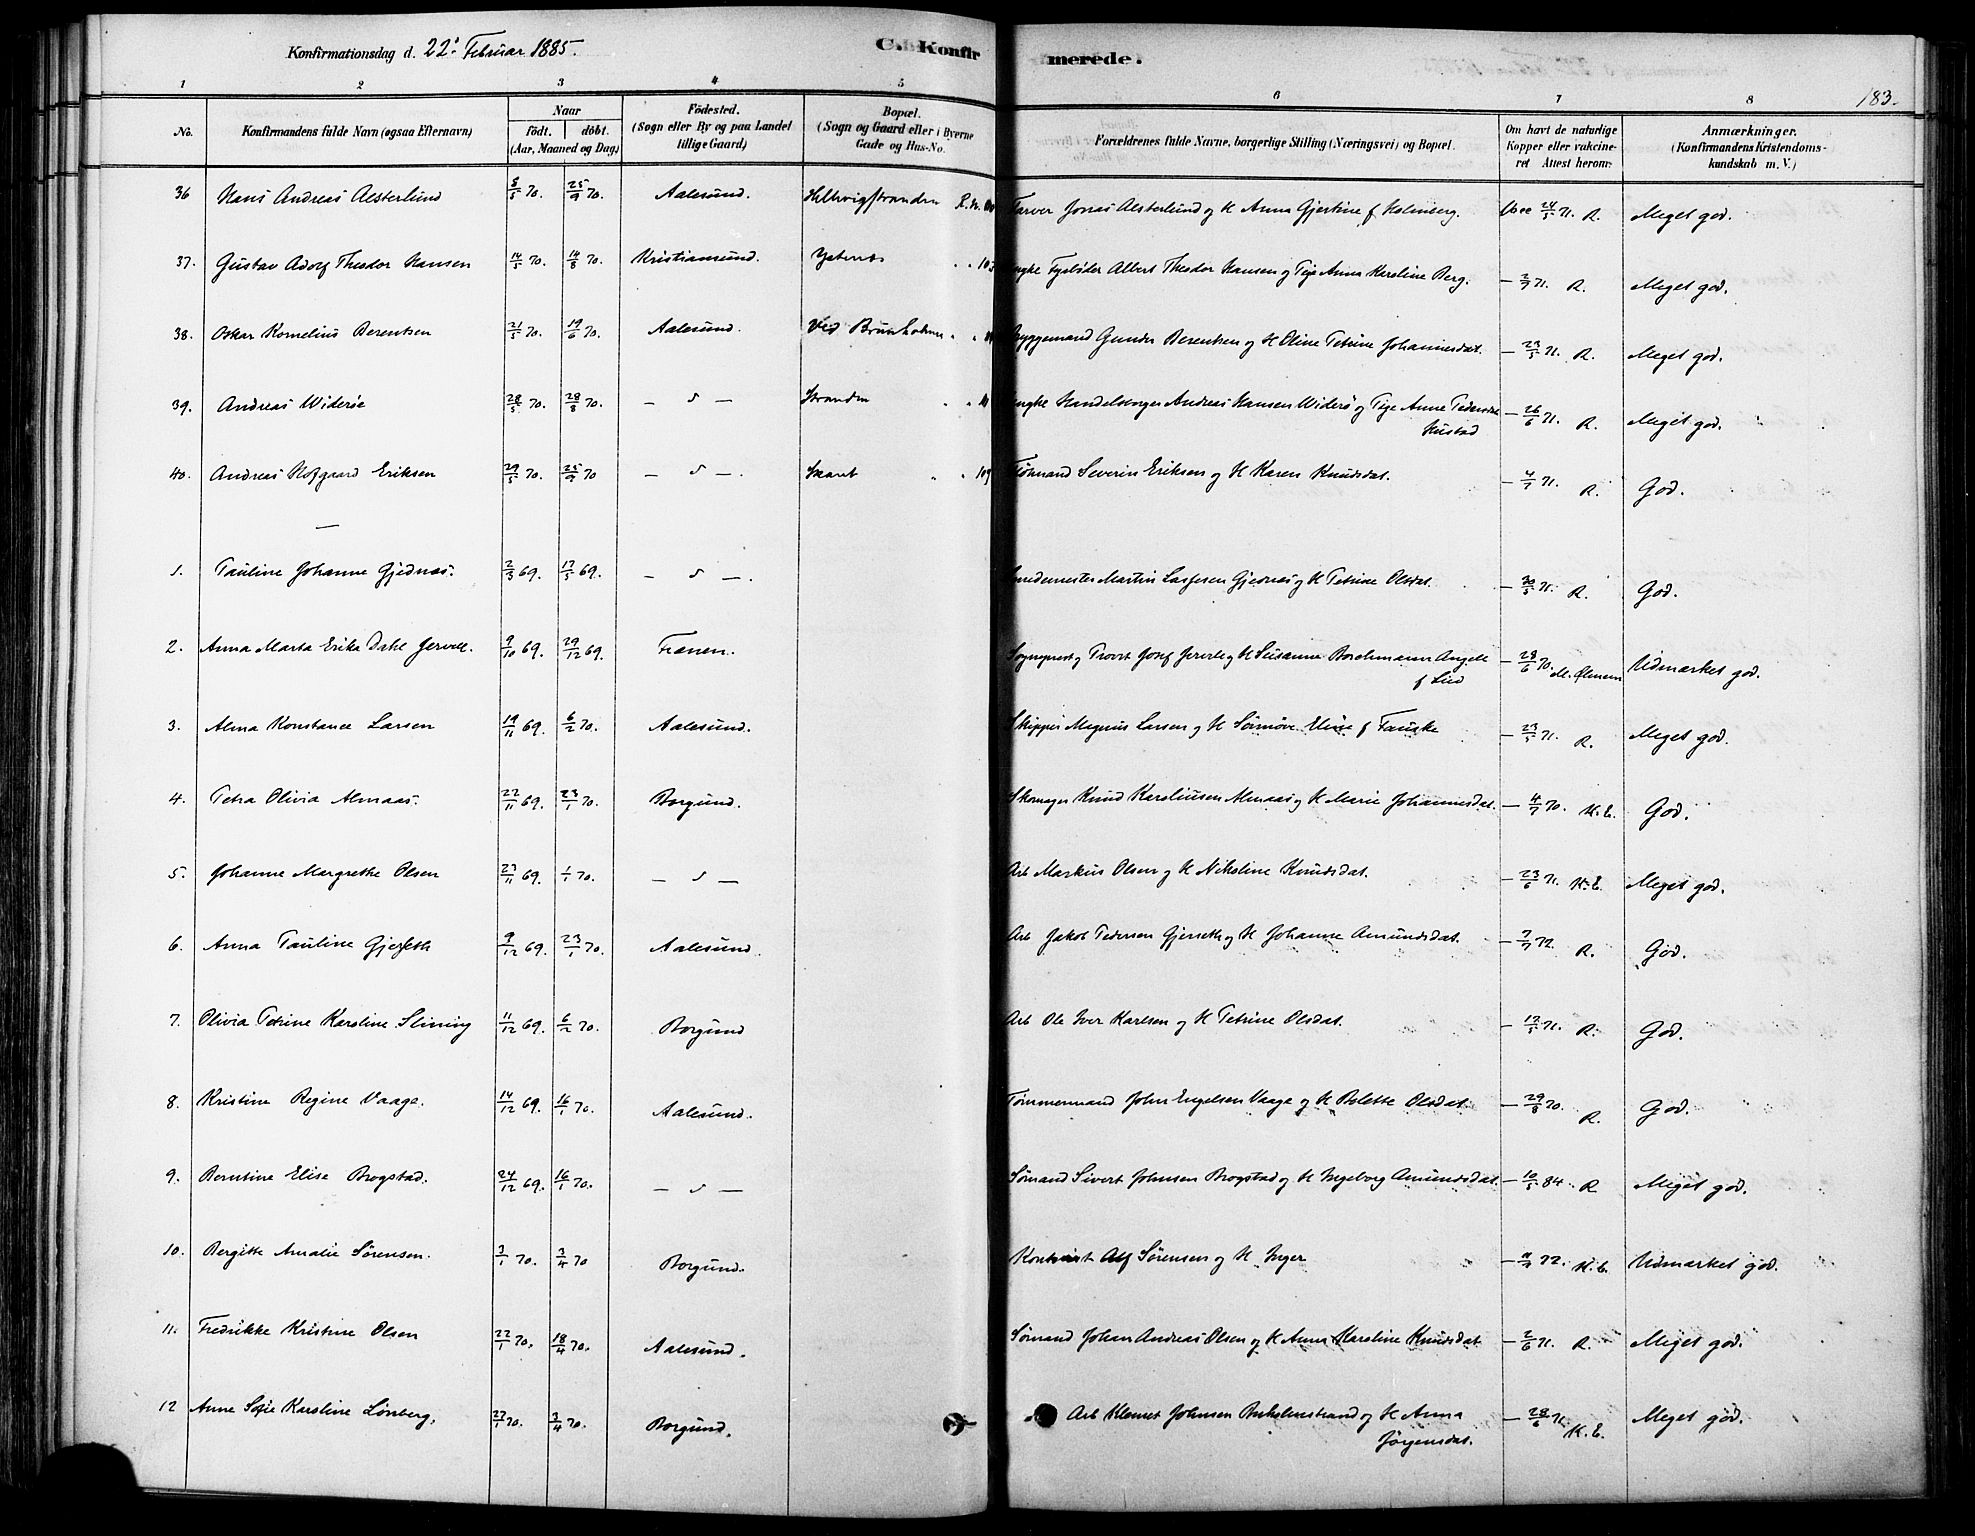 Konfirmationsdag d. 22de Februar 1885.
C. Konfirmerede.
183.
1 2 3 4 5 6 7 8
No. Konfirmandens fulde Navn (ogsaa Efternavn) Naar födt. döbt. (Aar, Maaned og Dag) Födested. (Sogn eller By og paa Landet tillige Gaard) Bopæl. (Sogn og Gaard eller i Byerne Gade og Hus-No. Forældrenes fulde Navne, borgerlige Stilling (Næringsvei) og Bopæl. Om havt de naturlige Kopper eller vakcineret Attest herom: Anmærkninger. (Konfirmandens Kristendomskundskab m. V.)
36 Hans Andreas Alsterlund 8/5 70. 25/9 70. Aalesund. Farver Jonas Alsterlund og H Anna Gjertine f Holmberg. 24/5 71. R. Meget god.
37. Gustav Adolf Theodor Hansen 14/5 70. 14/8 70. Kristiansund. Albert Theodor Hansen og Pige Anna Karoline Berg. — 3/7 71. R. Meget god.
38. Oskar Kornelius Berentsen 21/5 70. 19/6 70. Aalesund. Ved Brunholmen Byggemand Gunder Berentsen og H Oline Petrine Johannesdat. — 23/5 71. R. Meget god.
39. Andreas Widerøe 28/5 70. 28/8 70. — " — Stranden Ungke Handelsborger Andreas Hansen Widerö og Pige Anne Pedersdat Hustad — 26/6 71. R. Meget god.
40. Andreas Hofgaard Eriksen 29/5 70. 25/9 70 — " —. Skaret Sömand Severin Eriksen og H Karen Knudsdat. — 4/7 71. R. God.
—
1. Pauline Johanne Gjednæs. 2/3 69. 17/5 69. — " —. Smedemester Martin Gjednæs og H Petrine Olsdat. — 30/5 71. R. God.
2. Anna Marta Erika Dahl Jervell. 9/10 69. 29/12 69. Frænen. Sogneprest og Provst Josef Jervell og H Susanne Angell f Lied — 28/6 70. Udmærket god.
3. Alma Konstance Larsen 19/11 69. 6/2 70. Aalesund. Skipper Magnus Larsen og H Sörnöve Elise f Fauske — 23/5 71. R. Meget god.
4. Petra Olivia Almaas. 22/11 69. 23/1 70. Borgund. Skomager Knud Karoliusen Almaas og H Marie Johannesdat. — 4/7 70. K.E. God.
5. Johanne Margrethe Olsen 23/11 69. 1/1 70. — " — Arb Markus Olsen og H Nikoline Knudsdat. — 23/6 71. K.E. Meget god.
6. Anna Pauline Gjerseth 9/12 69. 23/1 70. Aalesund. Arb Jakob Pedersen Gjerseth og H Johanne Amundsdat. — 7/7 72. R. God.
7. Olivia Petrine Karoline Slining 11/12 69. 6/2 70. Borgund Arb Ole Iver Karlsen og H Petrine Olsdat. — 17/5 71. R. God.
8. Kristine Regine Vaage. 14/12 69. 16/1 70. Aalesund. Tömmermand John Engelsen Vaage og H Belette Olsdat. — 29/8 70. R. God.
9. Berntine Elise Brogstad. 24/12 69. 16/1 70. — " — Sömand Sivert Johnsen Brogstad og H Ingeborg Amundsdat — 10/5 84 R Meget god.
10. Bergitte Amalie Sörensen. 3/1 70. 3/4 70 Borgund. Sörensen og H Inger 72. K.E. Udmærket god.
11. Fredrikke Kristine Olsen 22/1 70. 18/4 70. Aalesund. Sömand Johan Andreas Olsen og H Anne Karoline Knudsdat — 2/6 71. R. Meget god.
12 Anne Sofie Karoline Lönberg. 27/1 70. 3/4 70. Borgund. Arb Klemet Johnsen og H Anna Jörgensdat. — 28/6 71. K.E. Meget god.